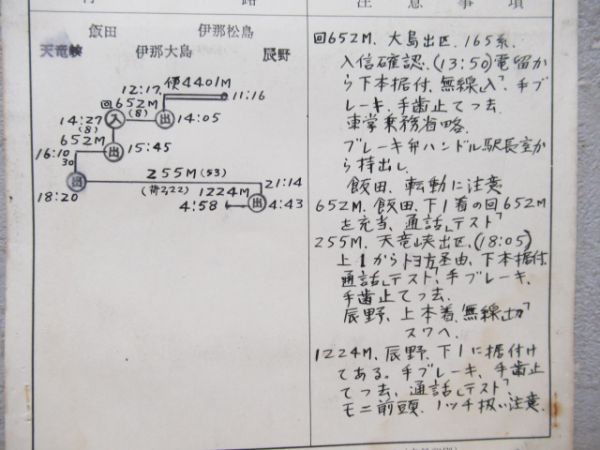 行 路
注 意 事 項
飯田 伊那松島
天竜峡 伊那大島 辰野
12:17 便4401M
11:16
回652M
(8)
14:27 入 出 14:05
(8)
652M
16:10 出 15:45
30
255M (53)
(荷2,22) 1224M 21:14
18:20 4:58 出 4:43
回652M、大島出区、165系、
入信確認、(13:50)電留か
ら下本据付、無線「入」、手ブ
レーキ、手歯止てっ去、
車掌乗務省略、
ブレーキ弁ハンドル駅長室か
ら持出し
飯田、転動に注意
652M、飯田、下1着の回652M
を充当、通話「テスト」
255M、天竜峡出区、(18:05)
上1から 下本据付
通話「テスト」、手ブレーキ、
手歯止てっ去、
辰野、上本着、無線「切」
スワへ、
1224M、辰野、下1に据付け
てある。手ブレーキ、手歯止
てっ去、通話「テスト」
モニ前頭、1ッチ扱い注意、